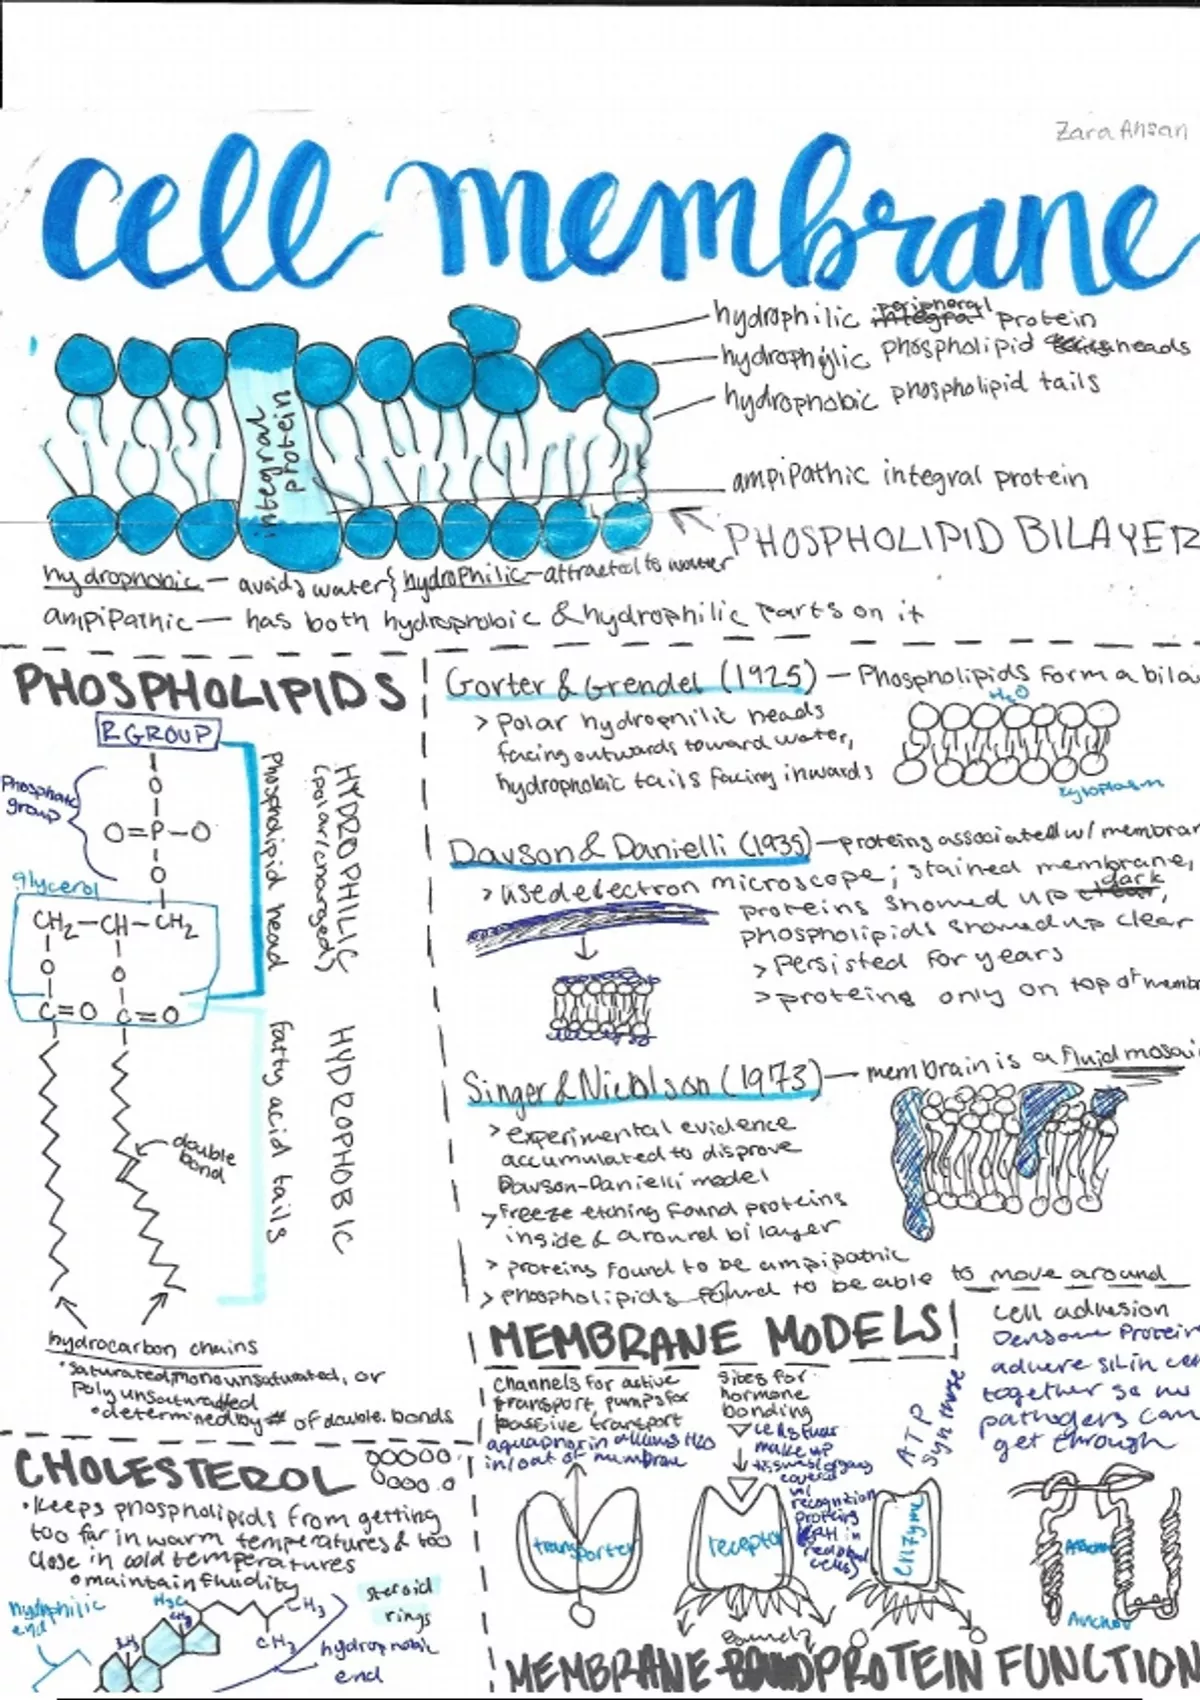 Zara Ahsan
cell membrane
hydrophilic peripheral protein
hydrophilic phospholipid heads
hydrophobic phospholipid tails
integral protein
ampipathic integral protein
PHOSPHOLIPID BILAYER
hydrophobic — avoids water } hydrophilic — attracted to water
ampipathic — has both hydrophobic & hydrophilic parts on it
PHOSPHOLIPIDS
R GROUP
Phosphate
group
O
O=P—O
O
glycerol
CH2—CH—CH2
O
O
C=O C=O
Phospholipid head
HYDROPHILIC
(polar/charged)
fatty acid tails
HYDROPHOBIC
double
bond
hydrocarbon chains
•saturated, monounsaturated, or
poly unsaturated
•determined by # of double bonds
CHOLESTEROL
•Keeps phospholipids from getting
too far in warm temperatures & too
close in cold temperatures
•maintain fluidity
hydrophilic
end
H3C
CH3
CH3
CH3
steroid
rings
hydrophobic
end
Gorter & Grendel (1925) — Phospholipids form a bila
> polar hydrophilic heads
facing outwards toward water,
hydrophobic tails facing inwards
H2O
cytoplasm
Davson & Danielli (1935) — proteins associated w/ membran
> used electron microscope; stained membrane,
proteins showed up dark,
phospholipids showed up clear
> Persisted for years
> proteins only on top of memb
Singer & Nicolson (1973) — membrain is a fluid mosai
> experimental evidence
accumulated to disprove
Davson-Danielli model
> freeze etching found proteins
inside & around bilayer
> proteins found to be ampipathic
> phospholipids found to be able to move around
MEMBRANE MODELS
channels for active
transport, pumps for
passive transport
aquaporin allows H2O
in/out of membrane
transporter
sites for
hormone
bonding
cells that
make up
tissues/organs
covered
w/
recognition
proteins
(RH in
red blood
cells)
receptor
ATP
synthase
enzyme
cell adhesion
adhere
together so no
pathogens can
get through
Anchor
MEMBRANE PROTEIN FUNCTION